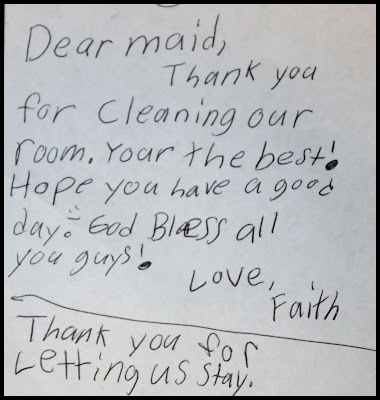 Dear maid,
Thank you
for Cleaning our
room. Your the best!
Hope you have a good
day. God Blæss all
you guys!
Love,
Faith
Thank you for
Letting us stay.